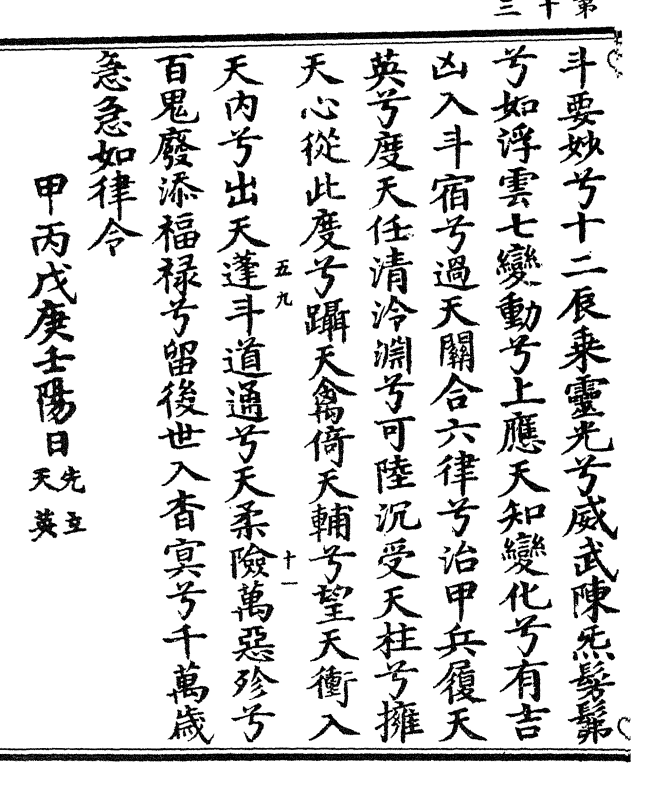 第十三
斗要妙兮十二辰乗靈光兮威武陳炁髣髴
兮如浮雲七變動兮上應天知變化兮有吉
凶入斗宿兮過天關合六律兮治甲兵履天
英兮度天任清泠淵兮可陸沉受天柱兮擁
天心從此度兮躡天禽倚天輔兮望天衝入
天内兮出天蓬斗道通兮天柔險萬惡殄兮
五九
十一
百鬼廢添福禄兮留後世入杳冥兮千萬歲
急急如律令
甲丙戊庚壬陽日先立天英